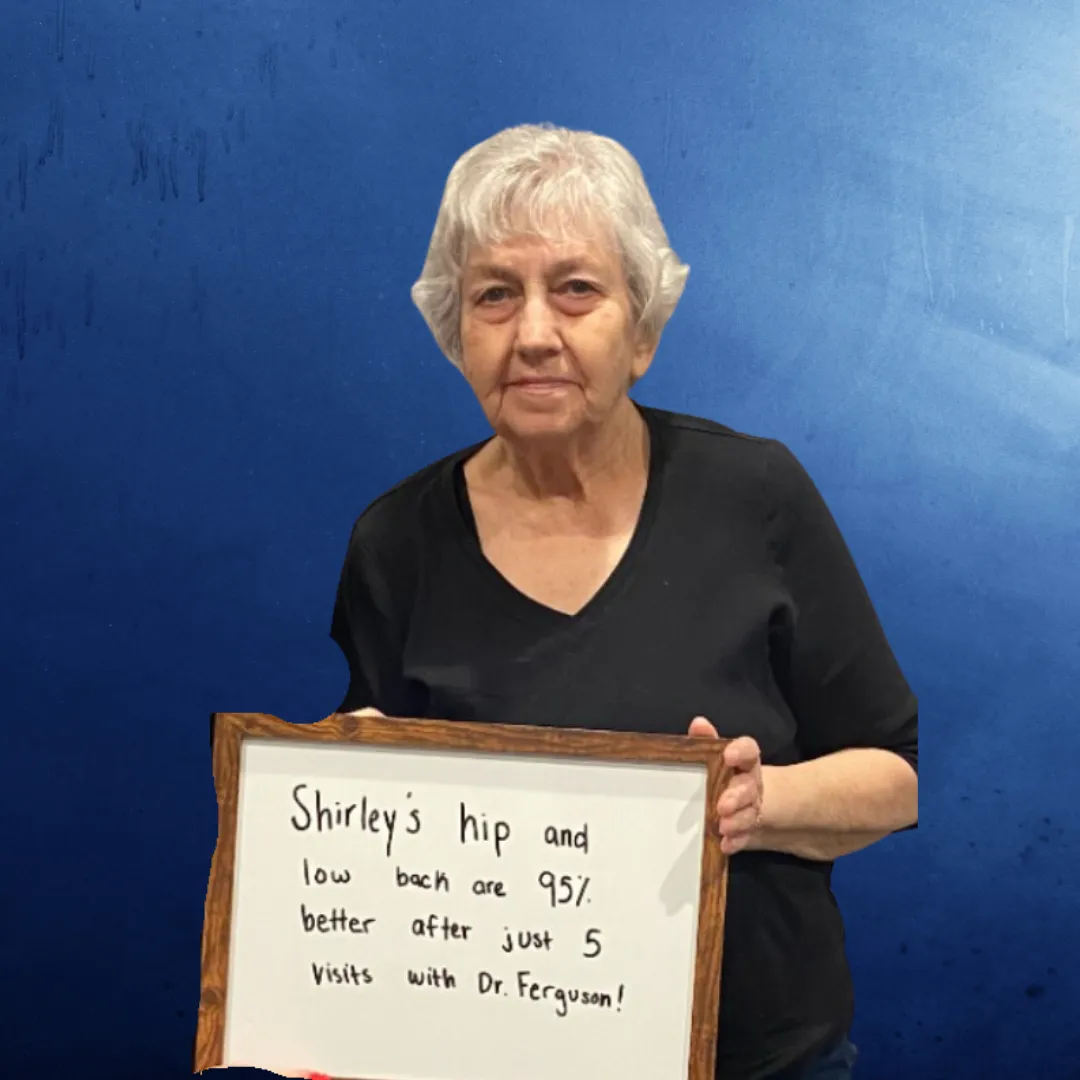 Shirley's hip and
low back are 95%
better after just 5
visits with Dr. Ferguson!